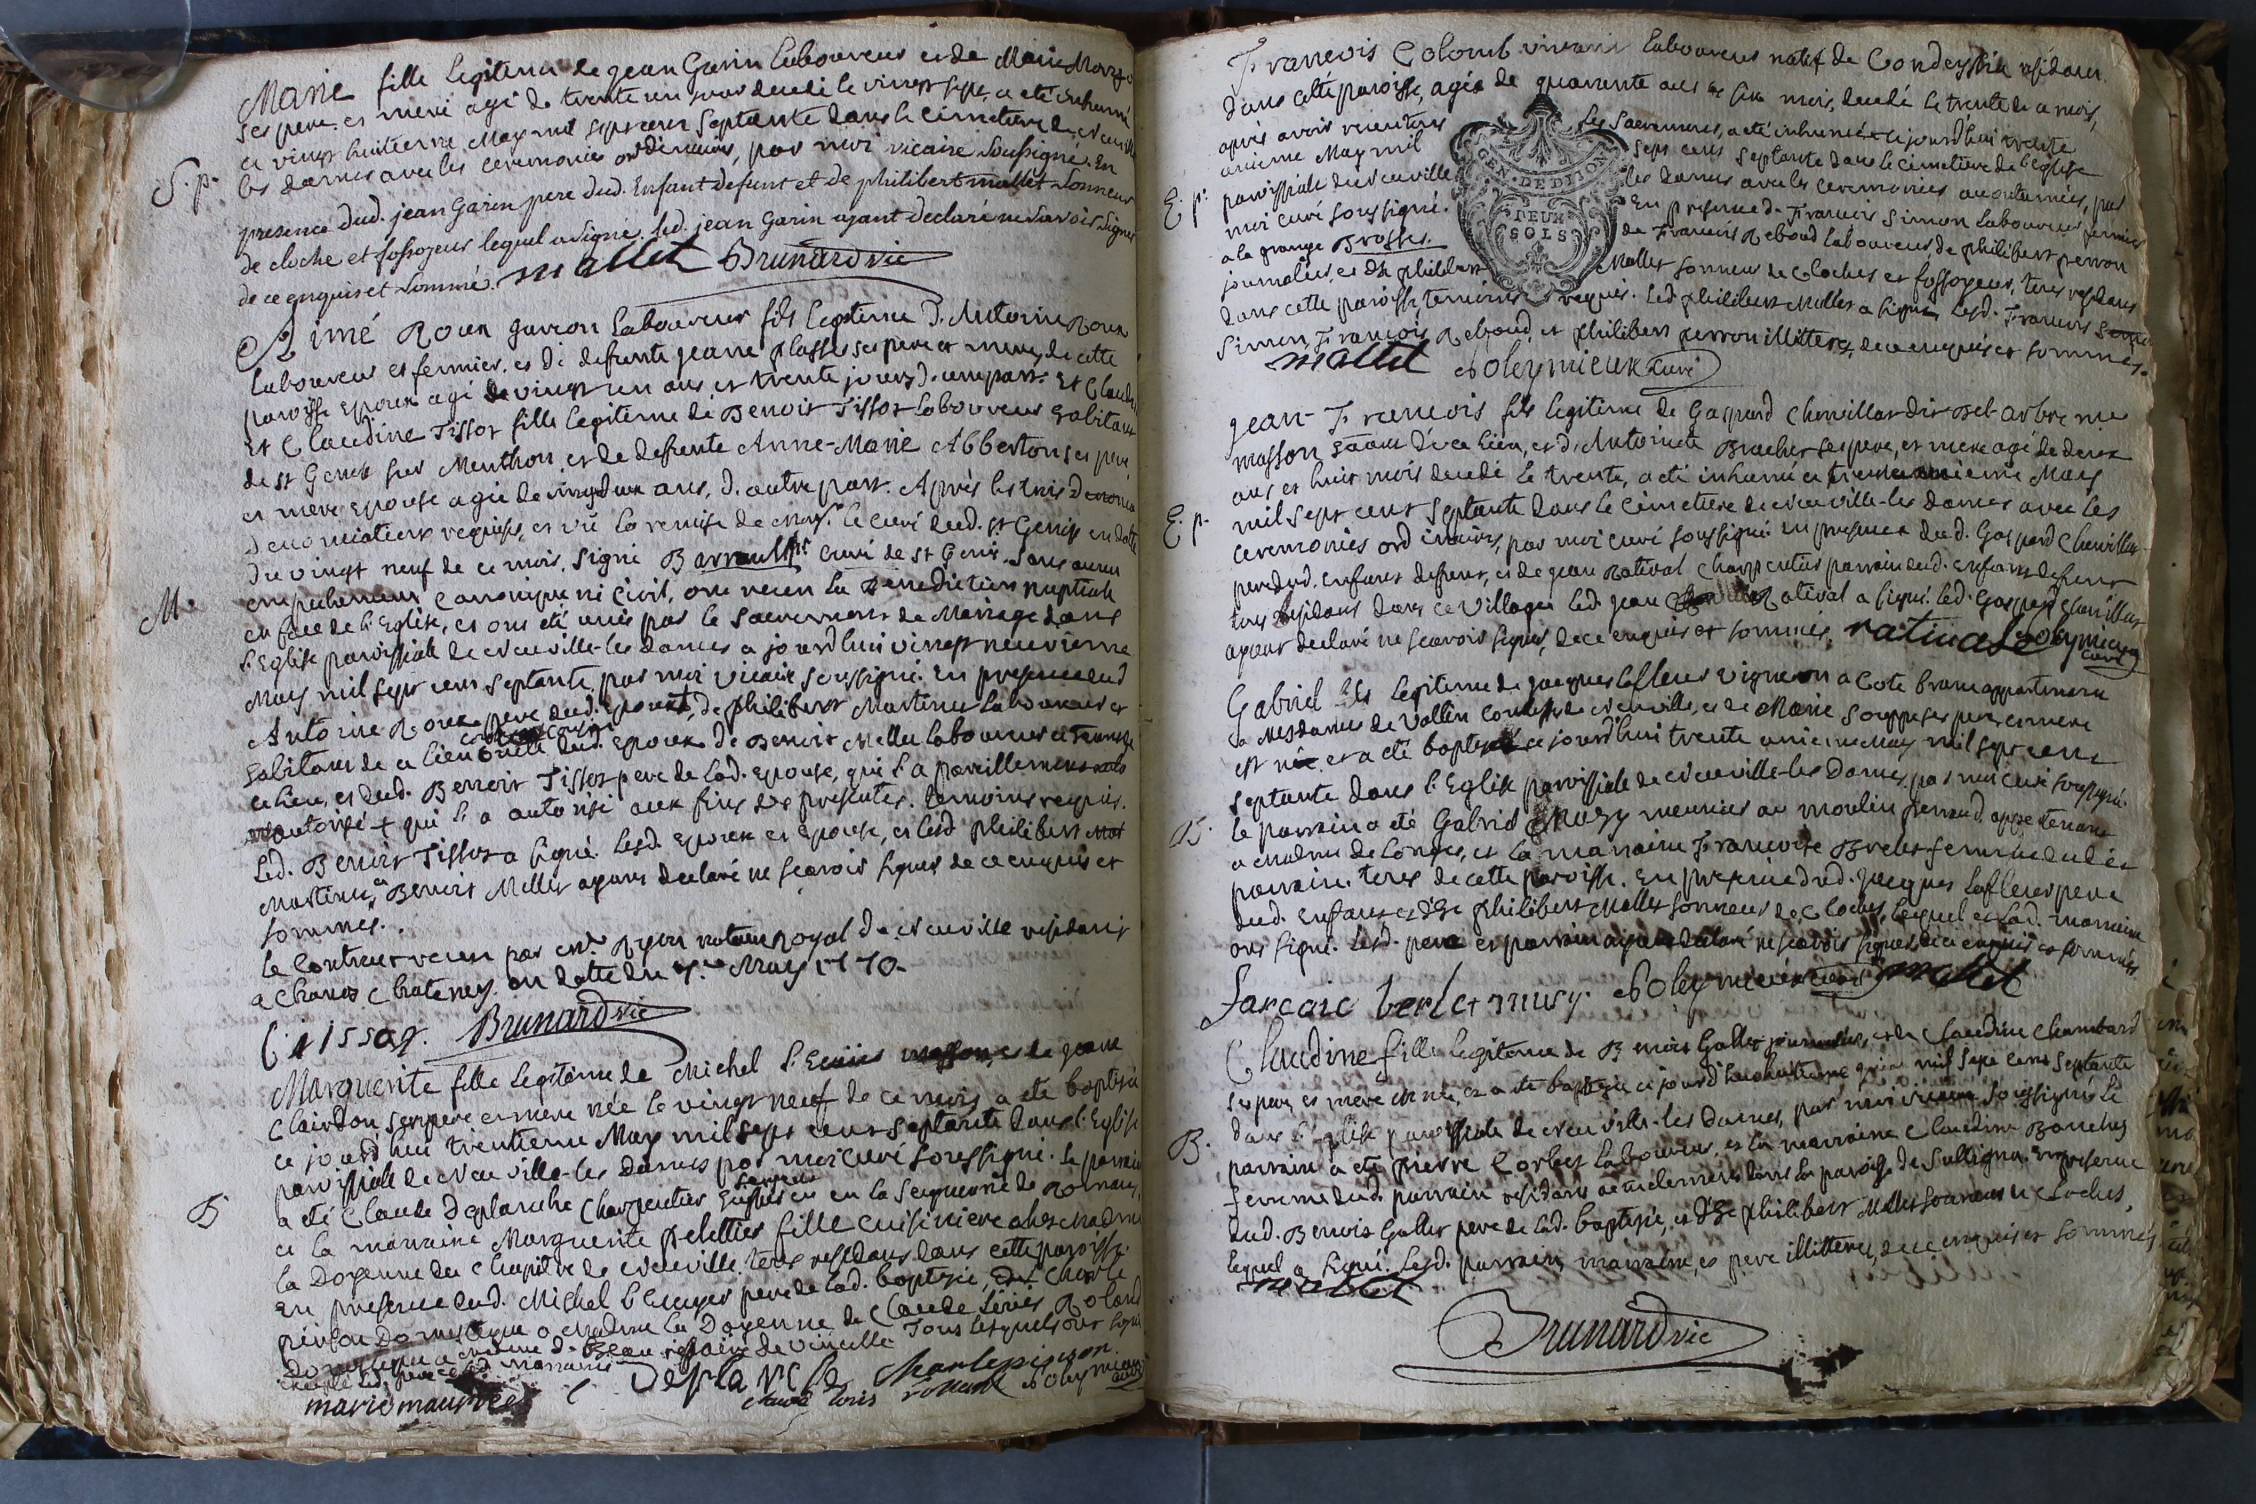 Marie fille legitime de jean Garin laboureur et de Marie
ses pere et mere agé de trente un jour decedé le vingt sept, a été inhumé
ce vingt huitieme May mil sept cent septante dans le cimetiere de neuville
les dames avec les ceremonies ordinaires, par moi vicaire soussigné. En
S. p.
presence dud. jean Garin pere dud. Enfant defunt et de philibert mallet sonneur
de cloche et fossoyeur lequel a signé. led. jean Garin ayant declaré ne savoir signer
de ce enquis et sommé. mallet Brunard vic
Aimé Roux garcon laboureur fils legitime d. Antoine Roux
laboureur et fermier, et de defunte jeane plasse ses pere et mere, de cette
paroisse epoux agé de vingt un ans et trente jours d. une part. Et Claud
Et Claudine Tissot fille legitime de Benoit Tissot laboureur habitant
de st Genis sur Menthon et de defunte Anne-Marie Abberton ses pere
et mere epouse agée de vingt deux ans, d. autre part. Après les trois
denonciations requises, et vû la remise de Mr. le curé dud. st Genis en datte
du vingt neuf de ce mois. signé Barrault curé de st Genis. sans aucun
M.
empechement canonique ni civil, ont recu la Benediction nuptiale
en face de l'Eglise, et ont été unis par le sacrement de Mariage dans
l'Eglise paroissiale de neuville-les dames a jourd'hui vingt neuvieme
May mil sept cent septante par moi vicaire soussigné. En presence dud
Antoine Roux pere dud. Epoux, de philibert Martinu laboureur et
habitant de ce lieu dud. epoux de Benoit Mellet laboureur
ce lieu, et dud. Benoit Tissot pere de lad. epouse, qui l'a pareillement
autorisé + qui l'a autorisé aux fins des presentes. temoins requis.
Led. Benoit Tissot a signé. Lesd. epoux et epouse, et lesd philibert
Martinu et Benoit Mellet ayant declaré ne scavoir signer de ce enquis et
sommes.
le contract recu par me notaire Royal de neuville residant
a Chanos Chatenay en datte du May 1770.
Brunard vic
Marguerite fille legitime de Michel masson, et de jeane
Clairdon ses pere et mere née le vingt neuf de ce mois a été baptisée
ce jourd'hui trentieme May mil sept cent septante dans l'Eglise
paroissiale de neuville-les dames par moi curé soussigné. Le parrain
B
a été Claude Deplanche charpentier en la seigneurie de Romans,
et la marraine Marguerite Pelettier fille cuisiniere chez madme
la Doyenne du Chapitre de neuville. tous residans dans cette paroisse.
En presence dud. Michel pere de lad. baptisée, de Charle
pinson Domestique a madme la Doyenne de Claude Roland
Domestique a madme de Beaurepaire de vincelle Tous lesquels ont signé
Deplanche Charle pinson
claude loris rolland Poleymieux curé
François Colomb vivant laboureur natif de Condeyssia residant
dans cette paroisse, agée de quarante ans et six mois, decedé le trente de ce mois,
après avoir recu tous les sacremens, a eté inhumé ce jourd'hui trente
unieme May mil sept cens septante dans le cimetiere de l'Eglise
E. p.
paroissiale de neuville les dames avec les ceremonies accoutumées, par
moi curé soussigné. En presence de Francois Simon laboureur fermier
a la grange Brosses. de Francois Reboud laboureur, de philibert perron
journalier, et de philibert Mallet sonneur de cloches et fossoyeur, tous residans
dans cette paroisse temoins requis. Led. philibert Mallet a signé, Lesd. Francois
Simon, François Reboud, et philibert perron illitteres, de ce enquis et sommés.
GEN. DE DIJON
DEUX
SOLS
mallet Poleymieux curé
jean-Francois fils legitime de Gaspard Chevillar dit
masson de ce lieu, et d. Antoinete Brachet ses pere, et mere agé de deux
ans et huit mois decedé le trente, a été inhumé ce trente unieme May
E. p.
mil sept cent septante dans le cimetiere de neuville-les dames avec les
ceremonies ordinaires, par moi curé soussigné en presence dud. Gaspard Chevillar
pere dud. enfant defunt, et de jean Ratival charpentier parrain dud. enfant defunt
tous residans dans ce village. led. jean Ratival a signé. led. Gaspard Chevillar
ayant declaré ne scavoir signer, de ce enquis et sommés. ratival Poleymieux
curé
Gabriel fils legitime de jacques Lafleur vigneron a Cote brune appartenant
a Mesdames de Vallin comtesses de neuville, et de Marie Souppe ses pere et mere
est né et a été baptisé ce jourd'hui trente unieme May mil sept cent
septante dans l'Eglise paroissiale de neuville-les Dames, par moi curé soussigné.
B.
le parrain a été Gabriel meunier au moulin ferraud appartenant
a madme de Longes, et la marraine Francoise Brelet femme dudit
parrain. tous de cette paroisse. En presence dud. jacques Lafleur pere
dud. Enfant et de philibert Mallet sonneur de Cloches, lequel et lad. marraine
ont signé. Lesd. pere et parrain ayant declaré ne scavoir signer, de ce enquis et sommés
Poleymieux curé mallet
Claudine fille legitime de Benoit Gallet journalier, et de Claudine Chambard
ses pere et mere est née, et a été baptisée ce jourd'hui huitieme juin mil sept cens septante
dans l'Eglise paroissiale de neuville-les Dames, par moi vicaire soussigné. le
B.
parrain a été pierre Corbet laboureur, et la marraine Claudine
femme dud. parrain residans actuelement dans la paroisse de Sulligna. En presence
dud. Benoit Gallet pere de lad. baptisée, et de philibert Mallet sonneur de cloches,
lequel a signé. Lesd. parrain, marraine, et pere illitteres, de ce enquis et sommés
mallet
Brunard vic